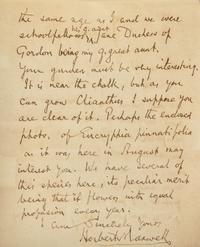 the same age as I and we were
schoolfellows, Jane Duchess of
Gordon being my g. great aunt.
Your garden must be very interesting.
It is near the chalk, but as you
can grow Clianthus I suppose you
are clear of it. Perhaps the enclosed
photo. of Eucryphia pinnatifolia
as it was here in August may
interest you. We have several of
this species here; its peculiar merit
being that it flowers with equal
profusion every year.
Sincerely Yours,
Herbert Maxwell